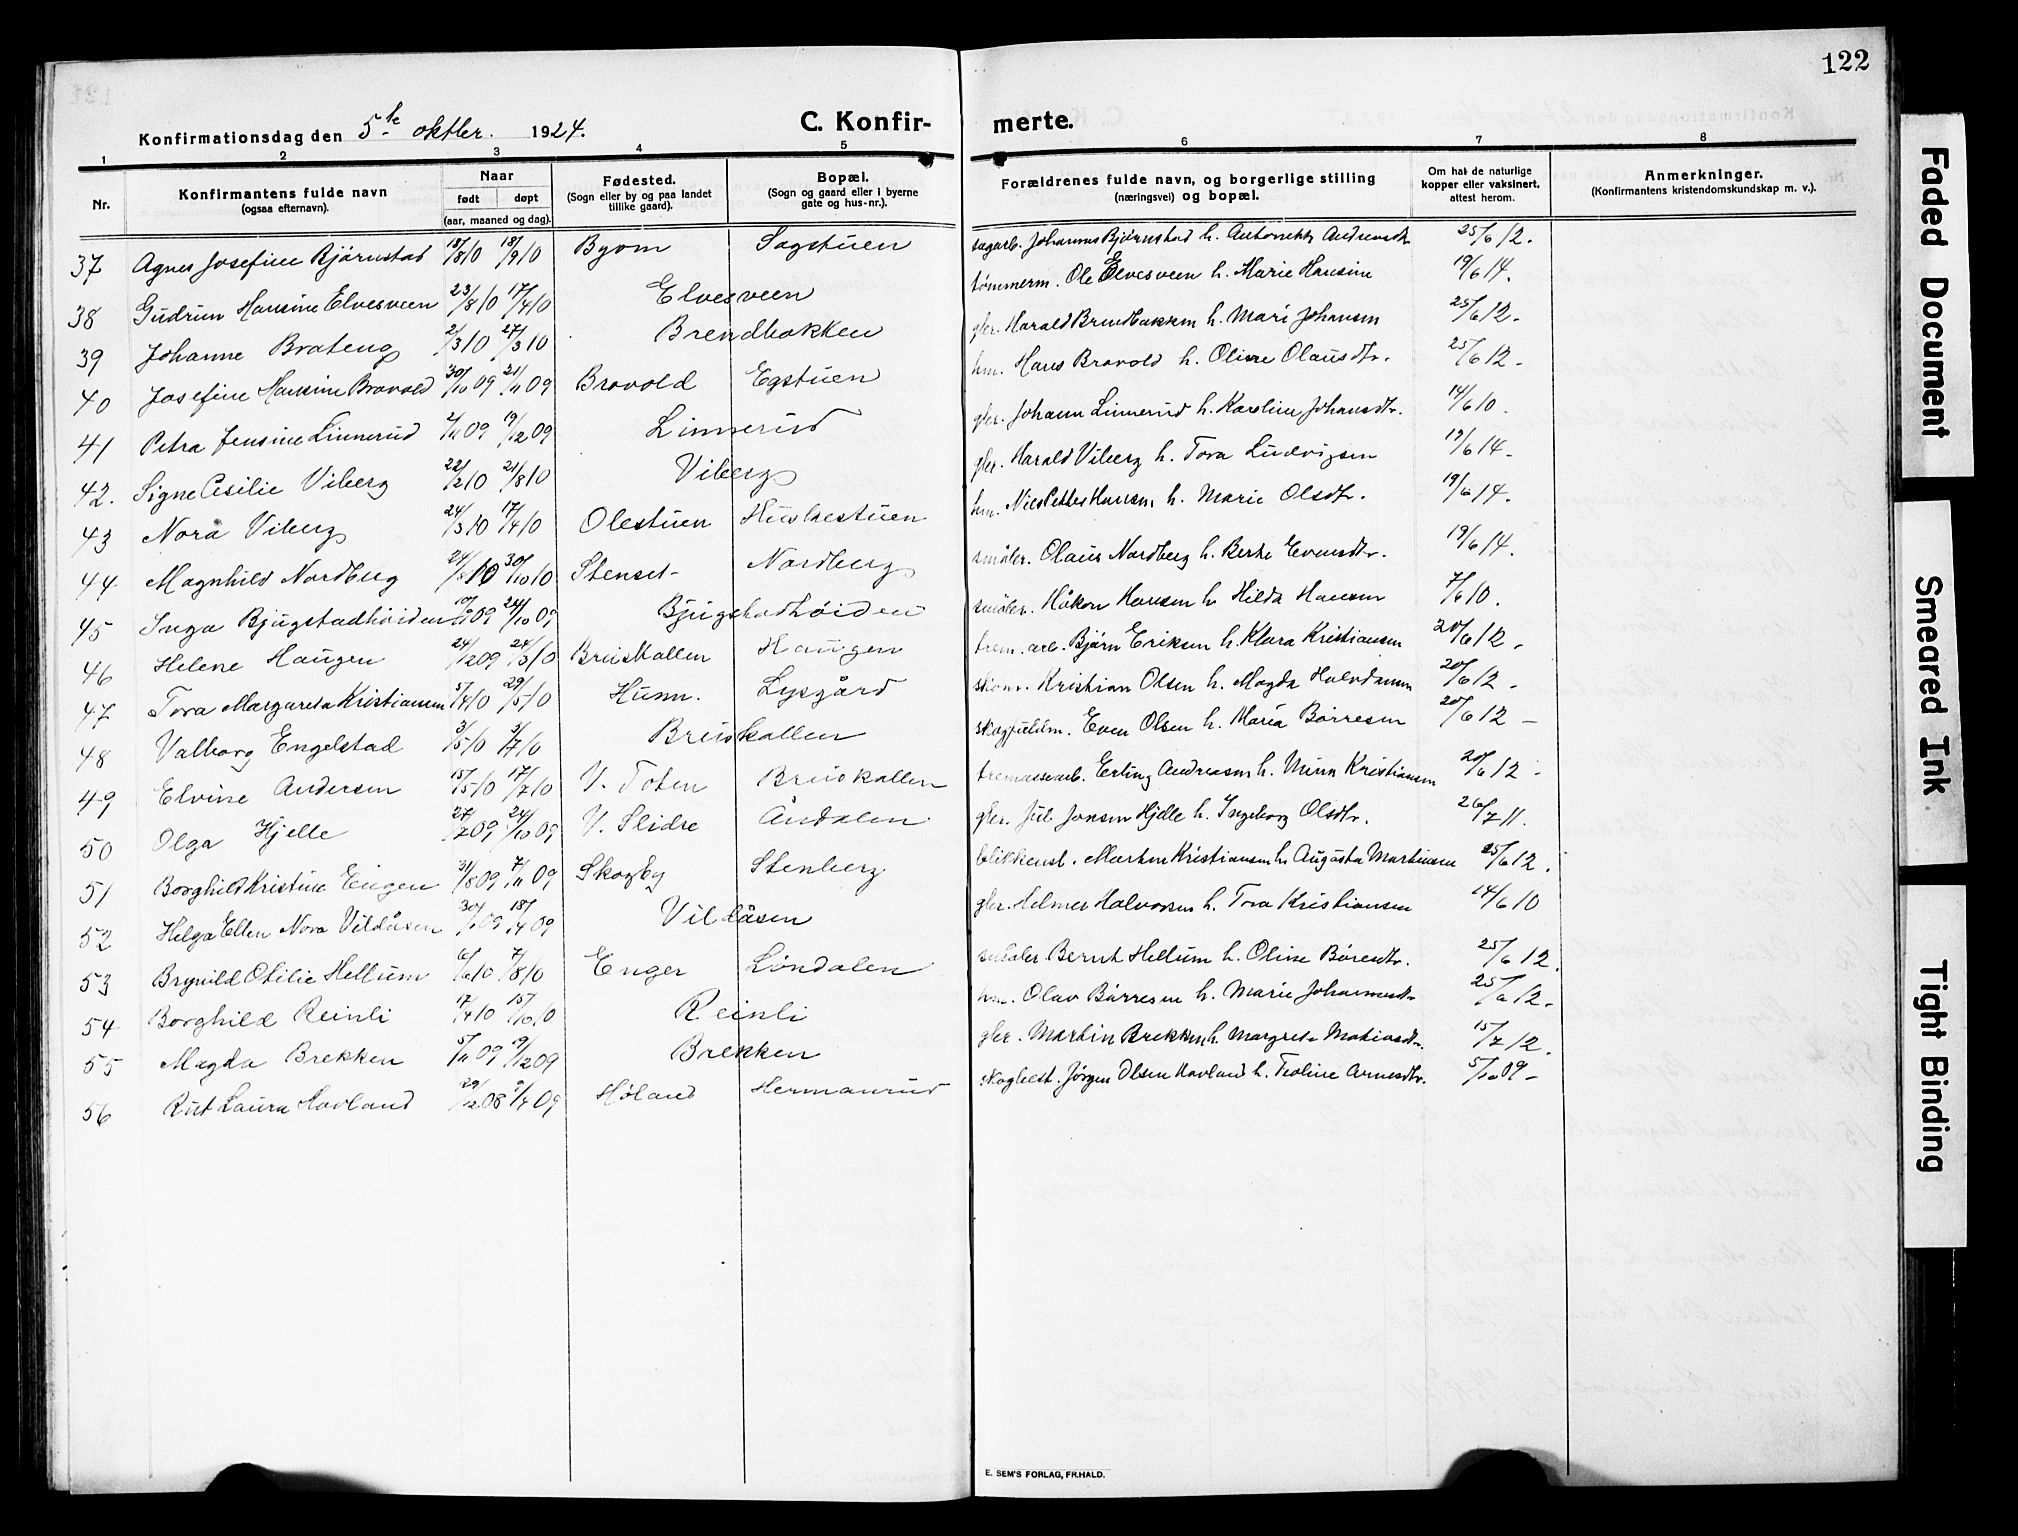 122
Konfirmationsdag den 5te oktbr. 1924.
C. Konfir- merte.
1 2 3 4 5 6 7 8
Nr.
Konfirmantens fulde navn
(ogsaa efternavn).
Naar
født døpt
(aar, maaned og dag).
Fødested.
(Sogn eller by og paa landet
tillike gaard).
Bopæl.
(Sogn og gaard eller i byerne
gate og hus-nr.).
Forældrenes fulde navn, og borgerlige stilling
(næringsvei) og bopæl.
Om hat de naturlige
kopper eller vaksinert,
attest herom.
Anmerkninger.
(Konfirmantens kristendomskundskap m. v.).
37 Agnes Josefine Bjørnstad 18/8 10 18/9 10 Byom Sagstuen sagarb. Johannes Bjørnstad h. Antonette Andreasdtr 25/6 12.
38 Gudrun Hansine Elvesveen 23/8 10 17/4 10 Elvesveen tømmerm. Ole Elvesveen h. Marie Hansine 19/6 14.
39 Johanne Brateng 2/3 10 27/3 10 Brendbakken gbr. Harald Brendbakken h. Mari Johansen 25/6 12.
40 Josefine Hansine Bravold 30/10 09 21/11 09 Bravold Egstuen hm. Hans Bravold h. Oline Olausdtr. 25/6 12 -
41 Petra Jensine Linnerud 2/11 09 19/12 09 Linnerud gbr. Johann Linnerud h. Karoline Johansdtr. 14/6 10.
42. Signe Cesilie Viberg 22/2 10 21/8 10 Viberg gbr. Harald Viberg h. Tora Ludvigsen 19/6 14 -
43 Nora Viberg 24/3 10 17/4 10 Olestuen Huskestuen hm. Nils Petter Hansen h. Marie Olsdtr. 19/6 14.
44 Magnhild Nordberg 30/10 10 Stenset Nordberg småbr. Olaus Nordberg h. Berte Evensdtr. 19/6 14.
45 Inga Bjugstadhøiden 09 24/10 09 Bjugstadhøiden småbr. Håkon Hansen h. Hilda Hansen 7/6 10.
46 Helene Haugen 24/12 09 24/3 10 Bruskallen Haugen trem. arb. Bjørn Eriksen h. Klara Kristiansen 20/6 12 -
47 Tora Margareta Kristiansen 5/4 10 29/5 10 Hunn. Lysgård Kristian Olsen h. Magda Halvdansen 20/6 12 -
48 Valborg Engelstad 3/5 10 3/7 10 Bruskallen Even Olsen h. Maria Børresen 20/6 12 -
49 Elvine Andersen 15/5 10 17/7 10 V. Toten Bruskallen tremassearb. Erling Andreasen h. Minn Kristiansen 20/6 12 -
50 Olga Hjelle 27/7 09 24/10 09 V. Slidre Åndalen gbr. Jul Jonsen Hjelle h. Ingeborg Olsdtr. 26/7 11.
51 Borghild Kristine Engen 31/8 09 7/11 09 Skogby Stenberg blikkensl. Marten Kristiansen h. Augusta Martinsen 25/6 12.
52 Helga Ellen Nora Vildåsen 30/1 09 18/4 09 Vildåsen gbr. Helmer Halvorsen h. Tora Kristiansen 14/6 10
53 Brynild Otilie Hellum 6/6 10 7/8 10 Enger Løndalen småbr. Bernt Hellum h. Oline Børesdtr. 25/6 12.
54 Borghild Reinli 17/4 10 15/10 10 Reinli hm. Olav Børresen h. Marie Johannesdtr 25/6 12 -
55 Magda Brekken 5/11 09 19/12 09 Brekken gbr. Martin Brekken h. Margrete Matiasdtr. 15/7 12.
56 Rut Laura Hovland 29/12 08 9/4 09 Høland Hermanrud skogbest. Jørgen Olsen Hovland h. Teoline Arnesdtr. 5/10 09 -
E. SEM'S FORLAG, FR.HALD.
Faded Document
Smeared Ink
Tight Binding